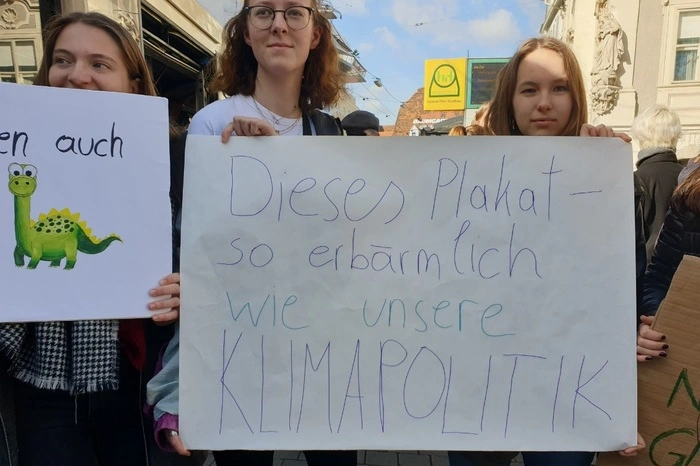 en auch
Dieses Plakat –
so erbärmlich
wie unsere
KLIMAPOLITIK